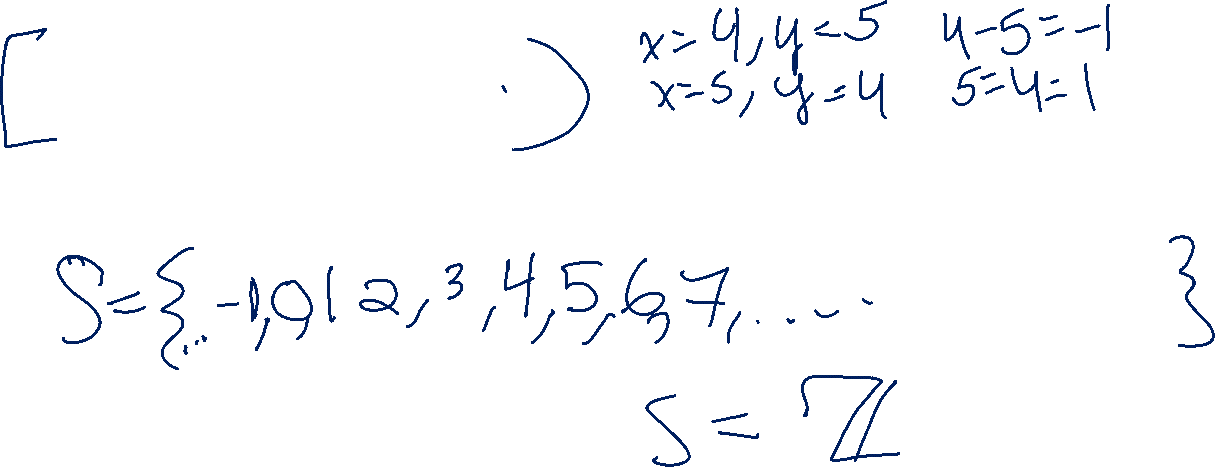 [ . ) x=4, y=5 4-5=-1
x=5, y=4 5=4=1
S={... -1,0,1 2, 3, 4, 5, 6, 7, ..... }
S = ℤ